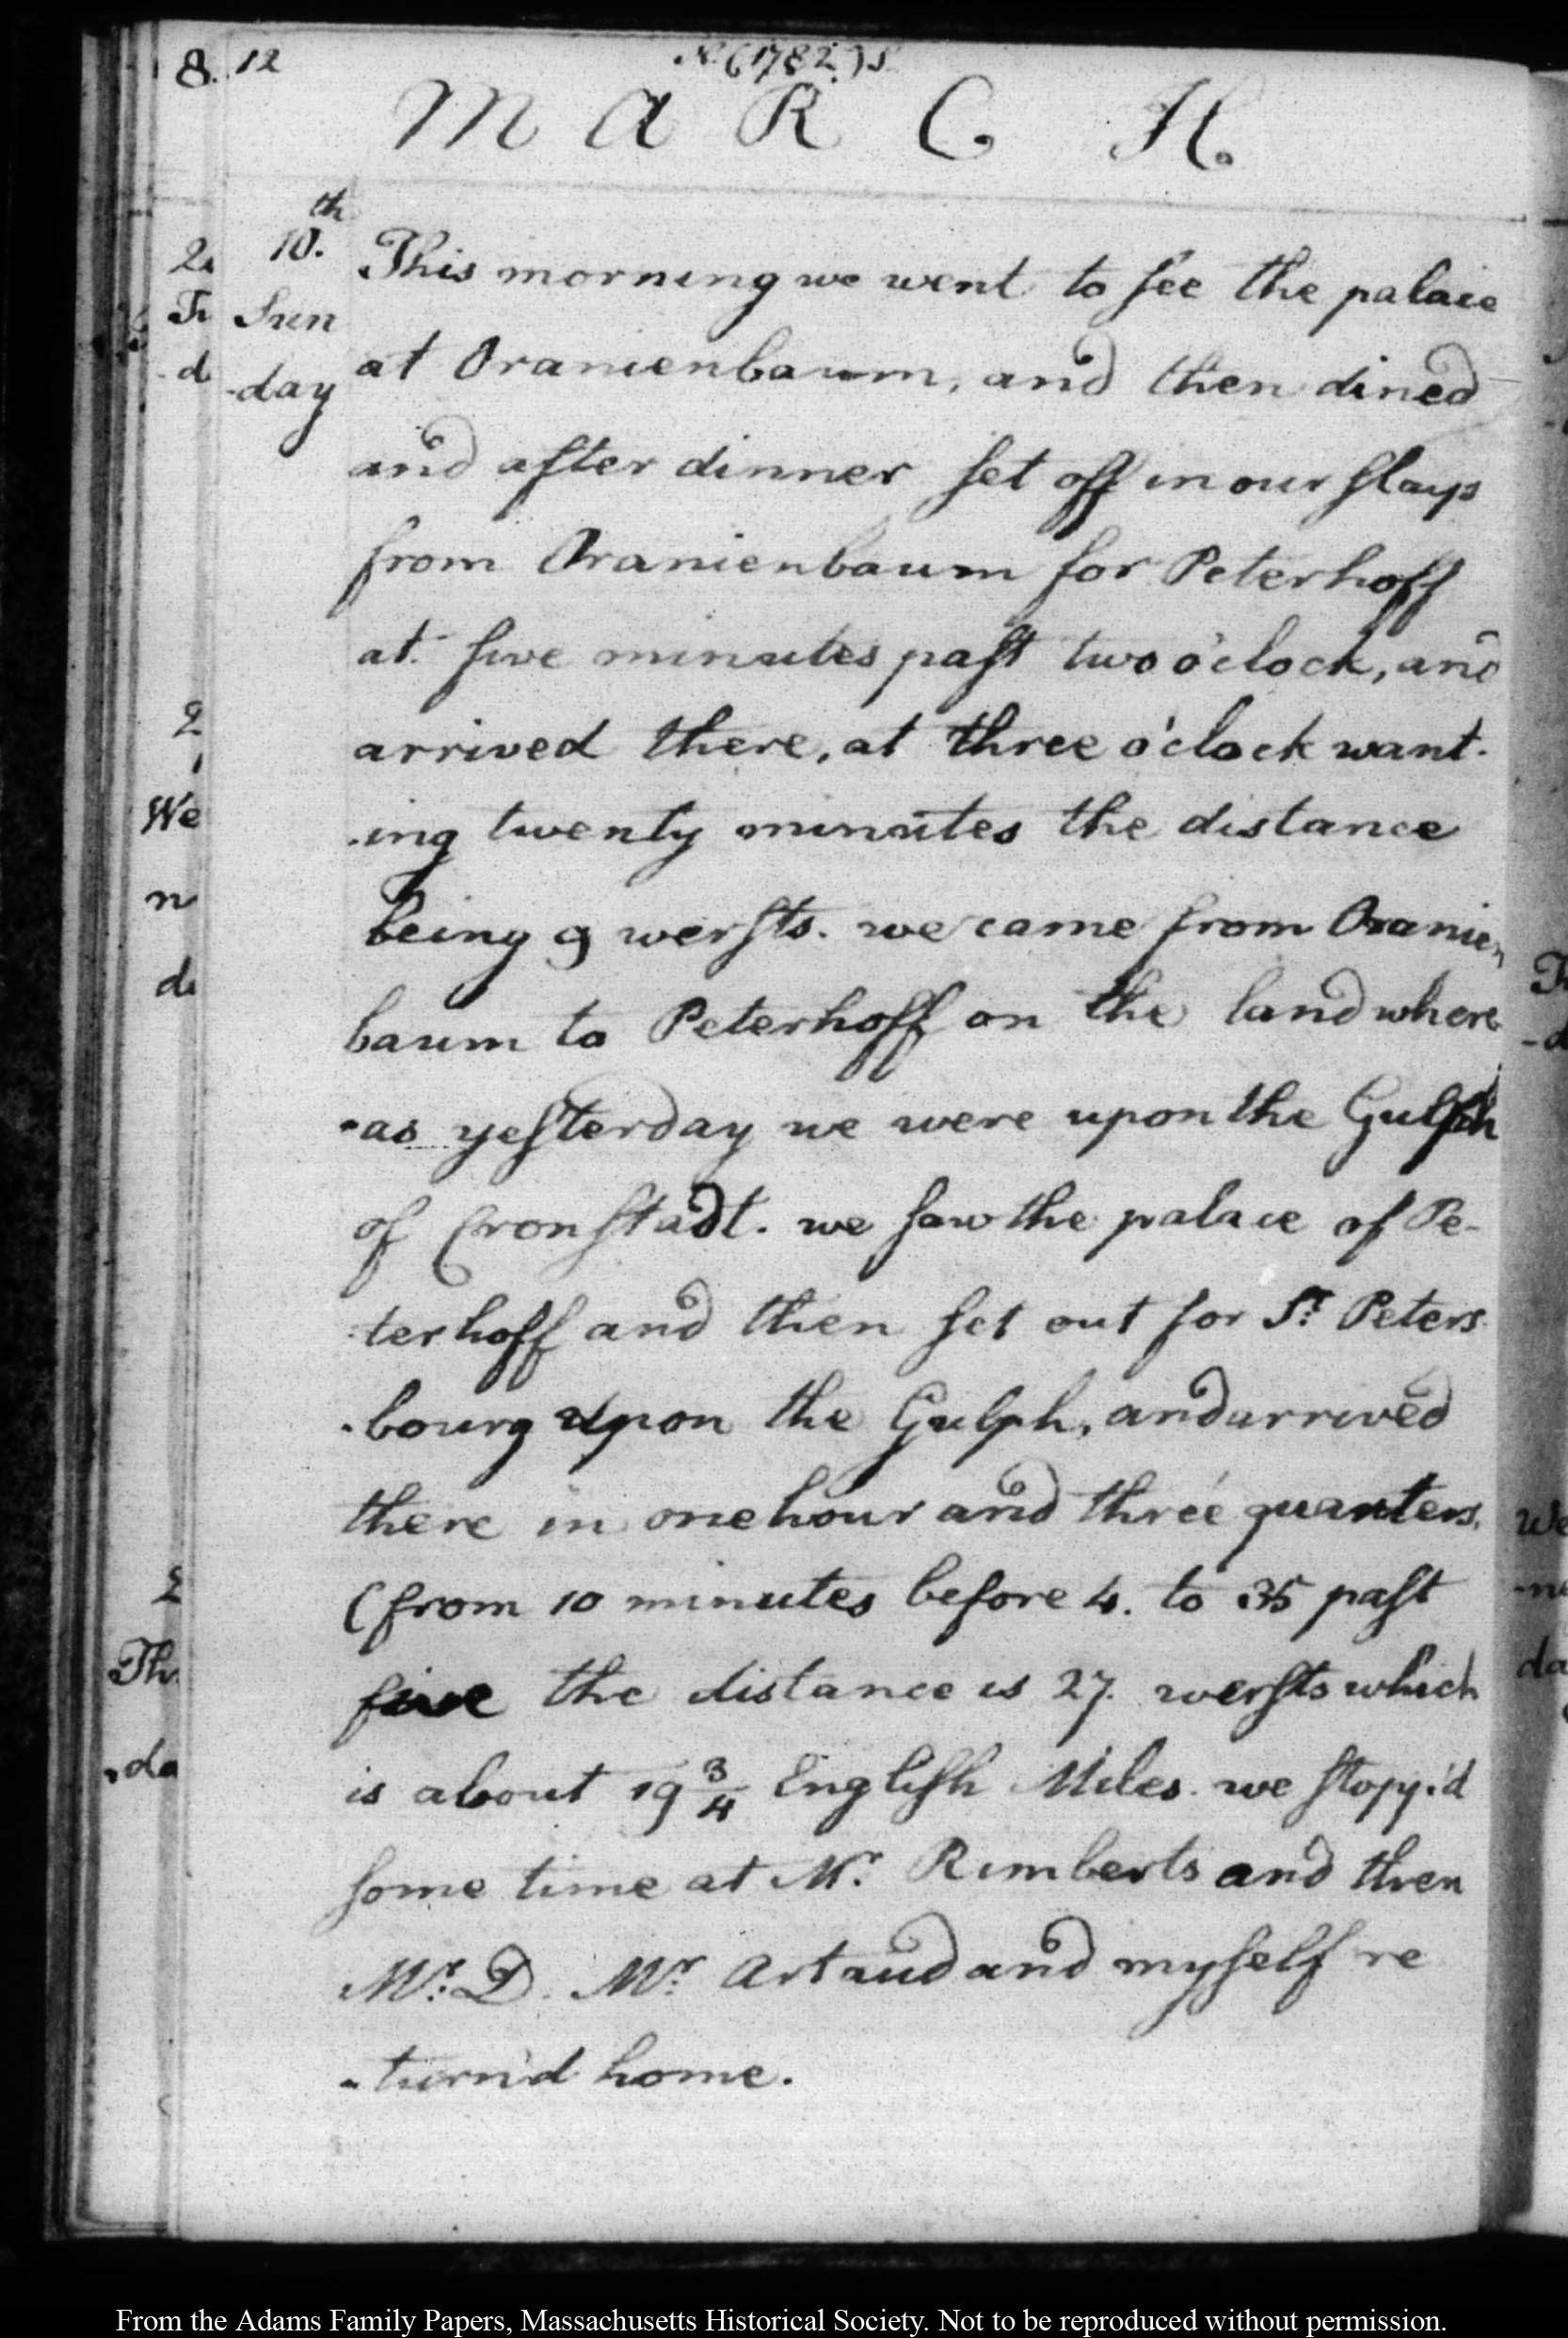 8. 12
N. (1782.) S.
M A R C H.
10.th
Sun
-day
This morning we went to see the palace
at Oranienbaum, and then dined
and after dinner set off in our slays
from Oranienbaum for Peterhoff
at five minutes past two o'clock, and
arrived there, at three o'clock want-
-ing twenty minutes the distance
being 9 wersts. we came from Oranien
baum to Peterhoff on the land where
-as yesterday we were upon the Gulph
of Cronstadt. we saw the palace of Pe-
-terhoff and then set out for St. Peters
-bourg upon the Gulph, and arrived
there in one hour and three quarters.
(from 10 minutes before 4. to 35 past
five the distance is 27. wersts which
is about 19 3/4 English Miles. we stopp'd
some time at Mr. Rimberts and then
Mr. D. Mr. Artaud and myself re
-turn'd home.
From the Adams Family Papers, Massachusetts Historical Society. Not to be reproduced without permission.